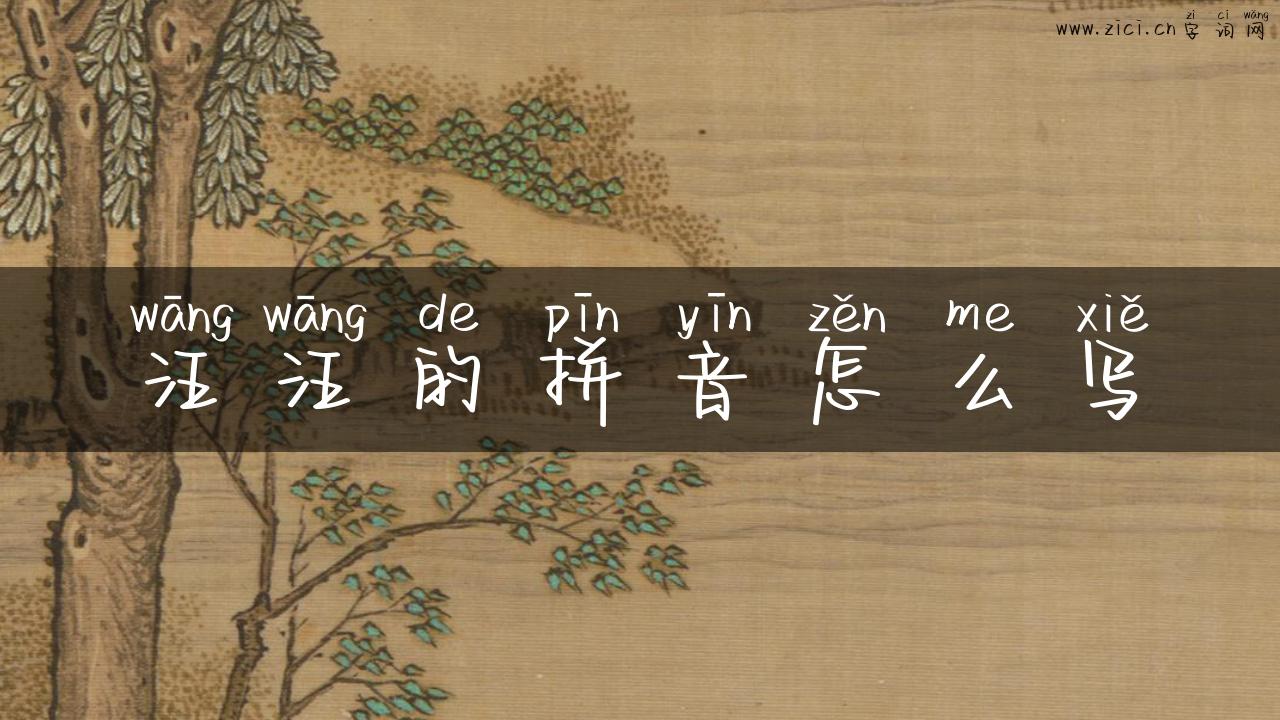 zì cí wǎng
www.zici.cn 字词网
wāng wāng de pīn yīn zěn me xiě
汪汪的拼音怎么写